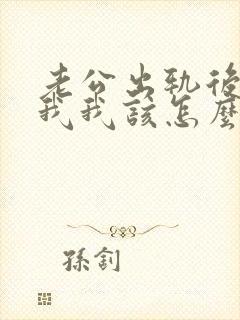 老公出軌後
我我該怎麼
孫釗